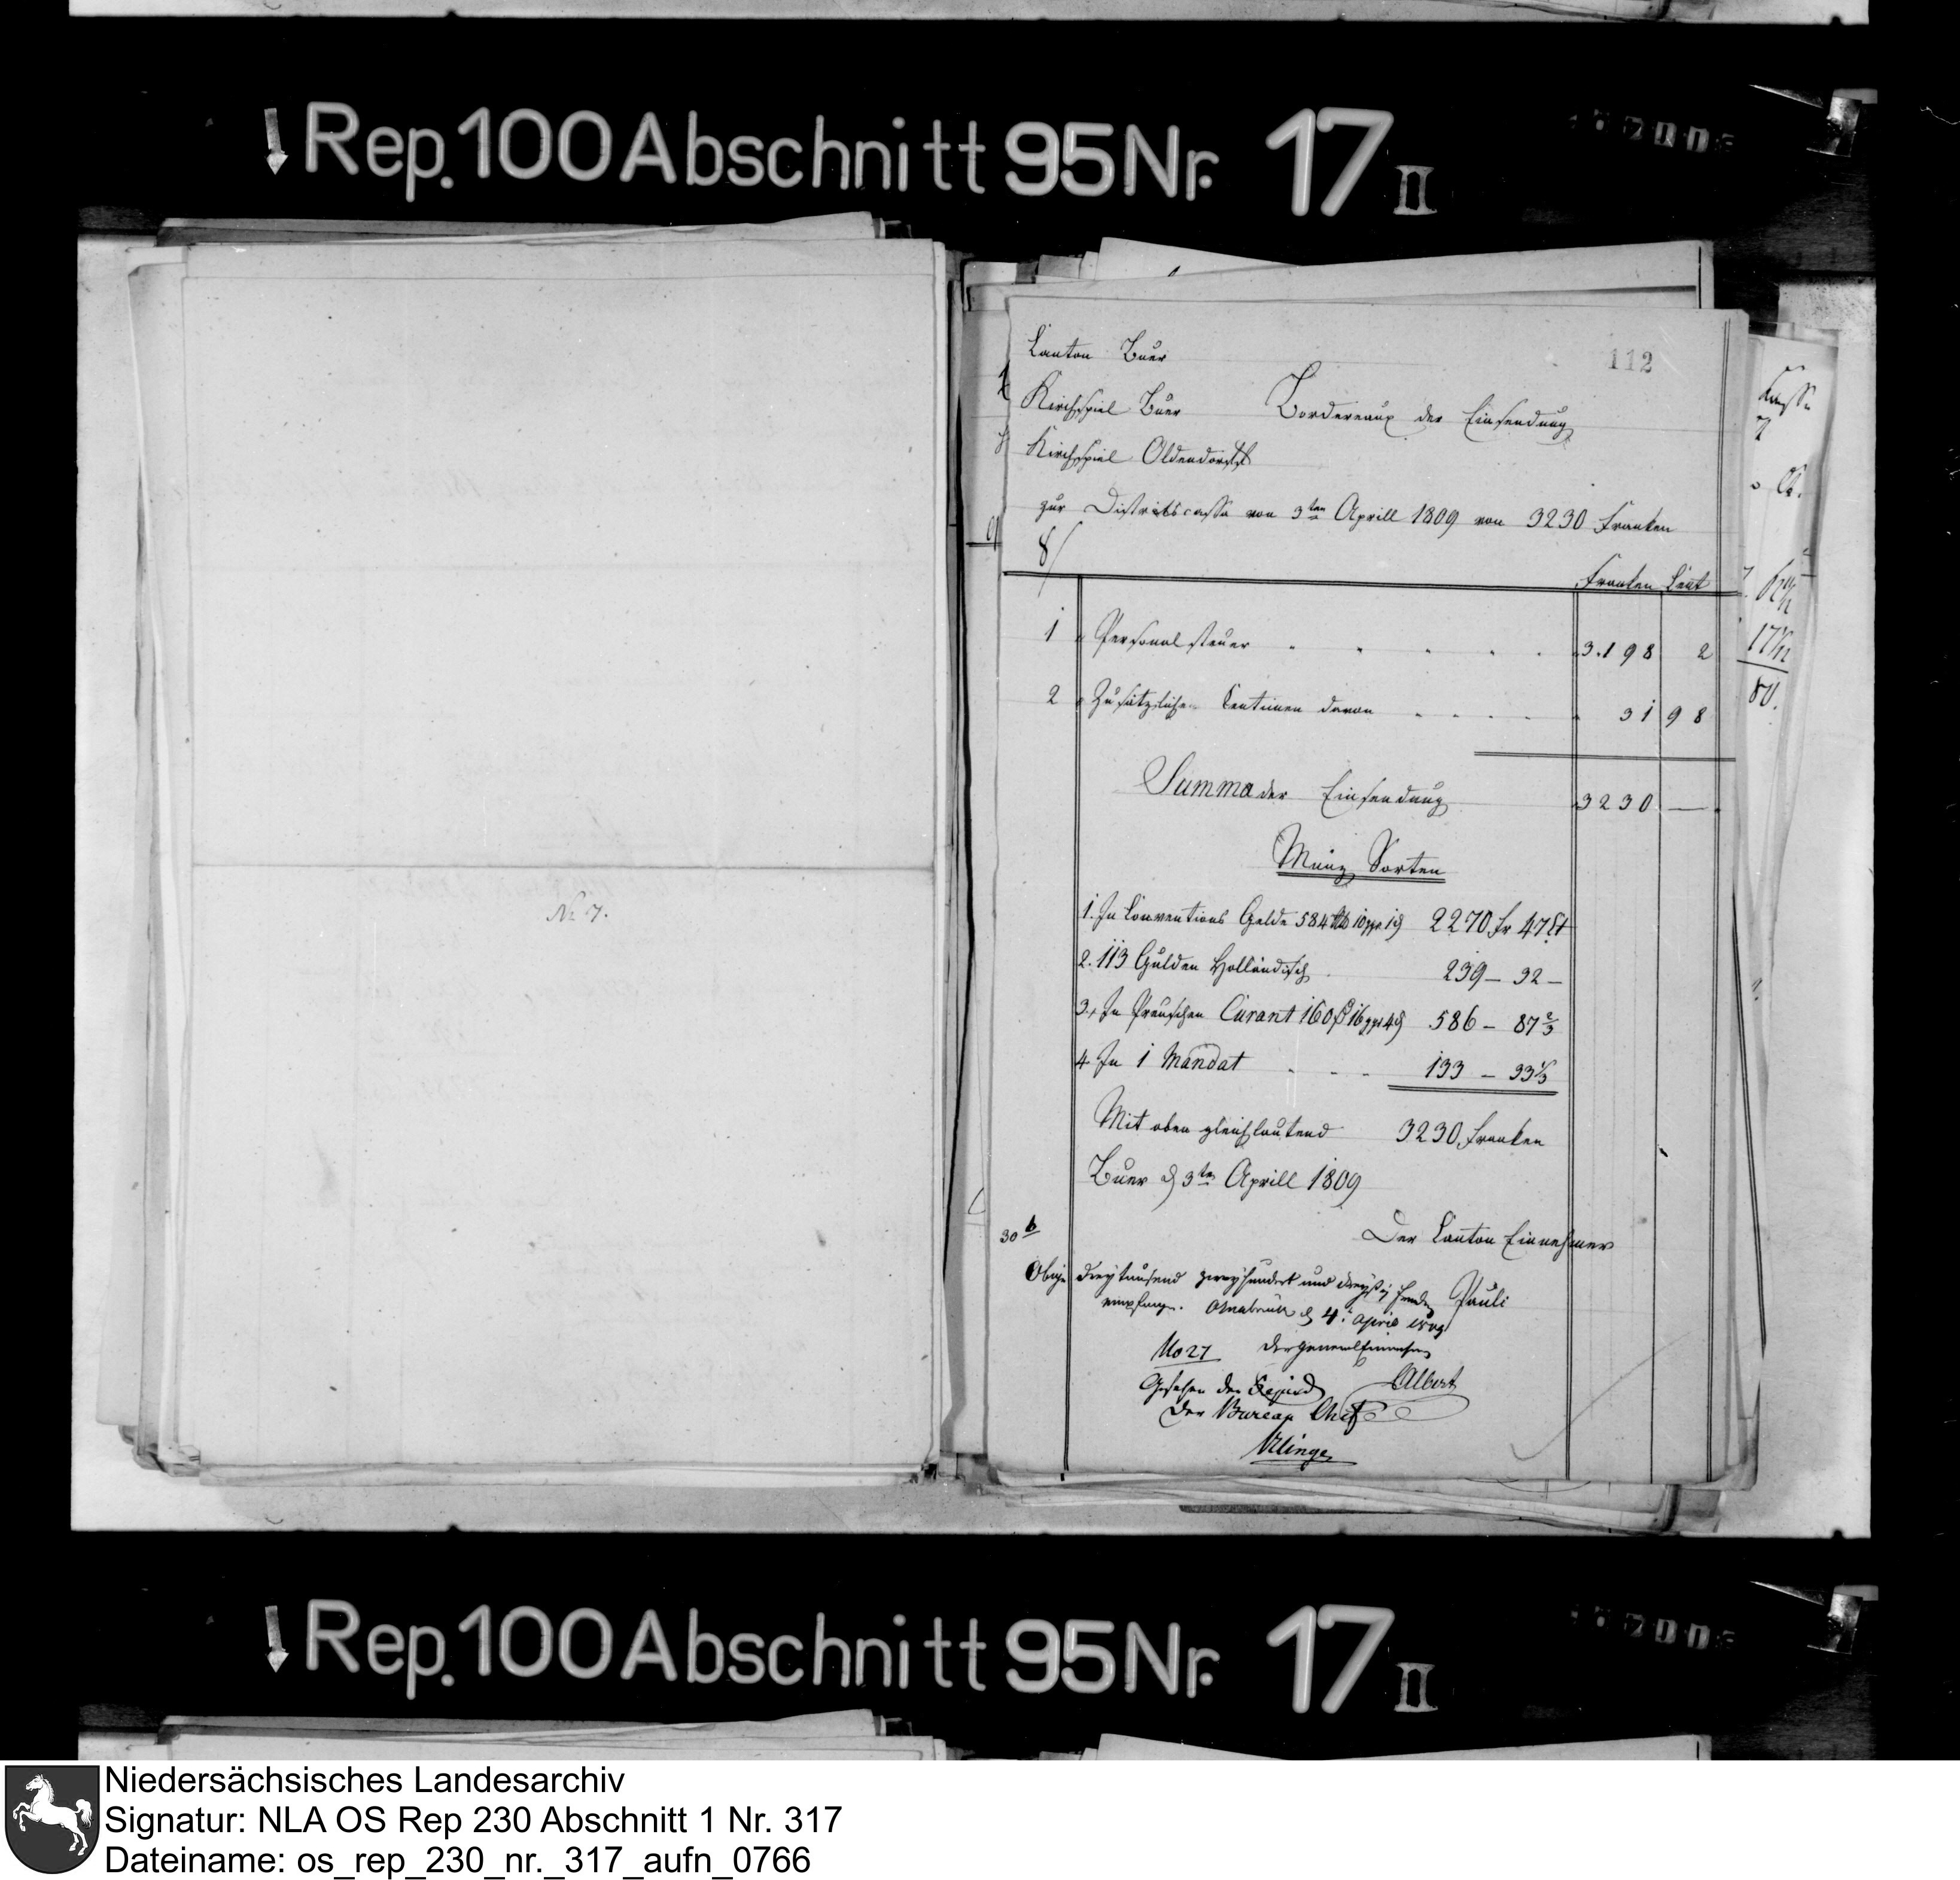 Rep. 100 Abschnitt 95 Nr. 17 II
112
Canton Buer
Kirchspiel Buer Bordereaux der Einsendung
Kirchspiel Oldendorff
zur Districtscassa von 3ten Aprill 1809 von 3230 Franken
8/
Franken Cent
1 Personalsteuer 3.198 2
2 Zusätzliche Centimen davon 31 98
Summa der Einsendung 3230 —
Münz Sorten
1. In Conventions Gelde 584 10 ggr 1 ₰ 2270 fr 47 Ct
2. 113 Gulden Holländisch 239 — 32 —
3. In Preuschen Curant 160 16 ggr 4 ₰ 586 — 87 2/3
4. In 1 Mandat 133 — 33 1/3
Mit oben gleichlautend 3230 Franken
Buer d 3ten Aprill 1809
30 b
Der Canton Einnehmer
Pauli
Obige dreytausend zweyhundert und dreyßig
empfangen. Osnabrück d 4t April 1809
No 27 der General Einnehmer
Albert
Gesehen der
Der Bureau Chef
No 7.
Rep. 100 Abschnitt 95 Nr. 17 II
Niedersächsisches Landesarchiv
Signatur: NLA OS Rep 230 Abschnitt 1 Nr. 317
Dateiname: os_rep_230_nr._317_aufn_0766